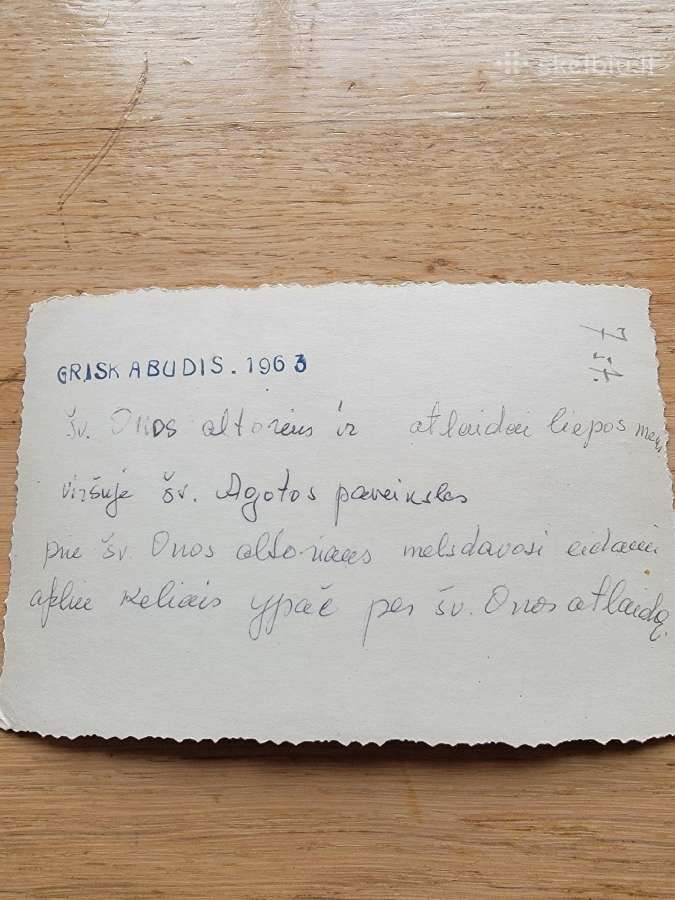 skelbiu.lt
7 st.
GRISKABUDIS. 1963
šv. Onos altorius ir atlaidai liepos men,
viršuje šv. Agotos paveikslas
prie šv. Onos altoriaus melsdavosi eidami
aplink keliais ypač per šv. Onos atlaidą.